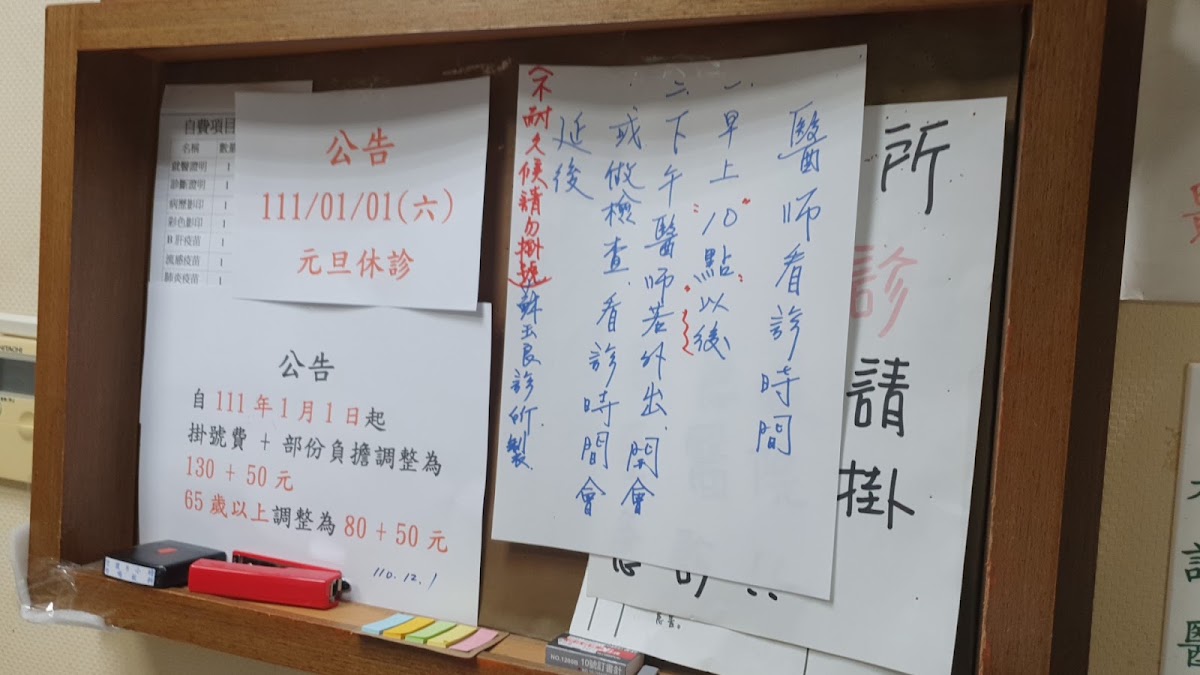 自費項目
名稱 數量
就醫證明 1
診斷證明 1
病歷影印 1
彩色影印 1
B肝疫苗 1
流感疫苗 1
肺炎疫苗 1
公告
111/01/01(六)
元旦休診
公告
自 111 年 1 月 1 日起
掛號費 + 部份負擔調整為
130 + 50 元
65 歲以上調整為 80 + 50 元
110.12.1
醫師看診時間
一.早上10點以後
二.下午醫師若外出.開會
或做檢查.看診時間會
延後
(不耐久候請勿掛號)
蘇玉良診所.製.
所
診
請
掛
HITACHI
NO.1269B
10號訂書針